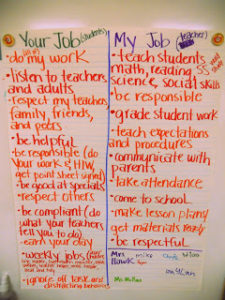 Your Job (students)
do my work
• listen to teachers
and adults
• respect my teachers,
family, friends,
and peers
• be helpful
• be responsible (do
your work & H/W,
get point sheet signed)
• be good at specials
• respect others
• be compliant (do
what your teachers
tell you to do)
• earn your day
• weekly jobs
• ignore off task and
distracting behaviors
My Job (teacher)
• teach students
math, reading, SS
science, social skills
• be responsible
• grade student work
• teach expectations
and procedures
• communicate with
parents
• take attendance
• come to school
• make lesson plans/
get materials ready
• be respectful
Mrs.
Hawk
mike